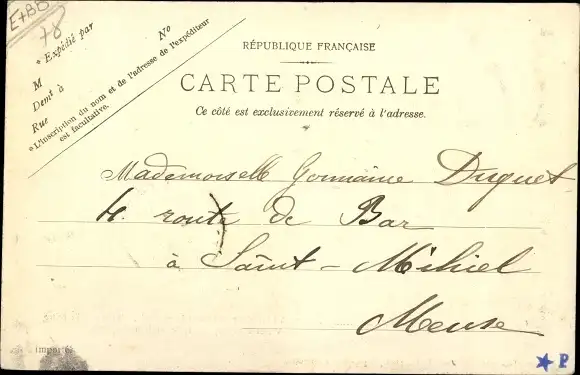 E+BB
78
* Expédié par
No
M
Demt à
Rue
*L'inscription du nom et de l'adresse de l'expéditeur
est facultative.
RÉPUBLIQUE FRANÇAISE
CARTE POSTALE
Ce côté est exclusivement réservé à l'adresse.
Mademoiselle Germaine Duguet
4. route de Bar
à Saint-Mihiel
Meuse
★ P